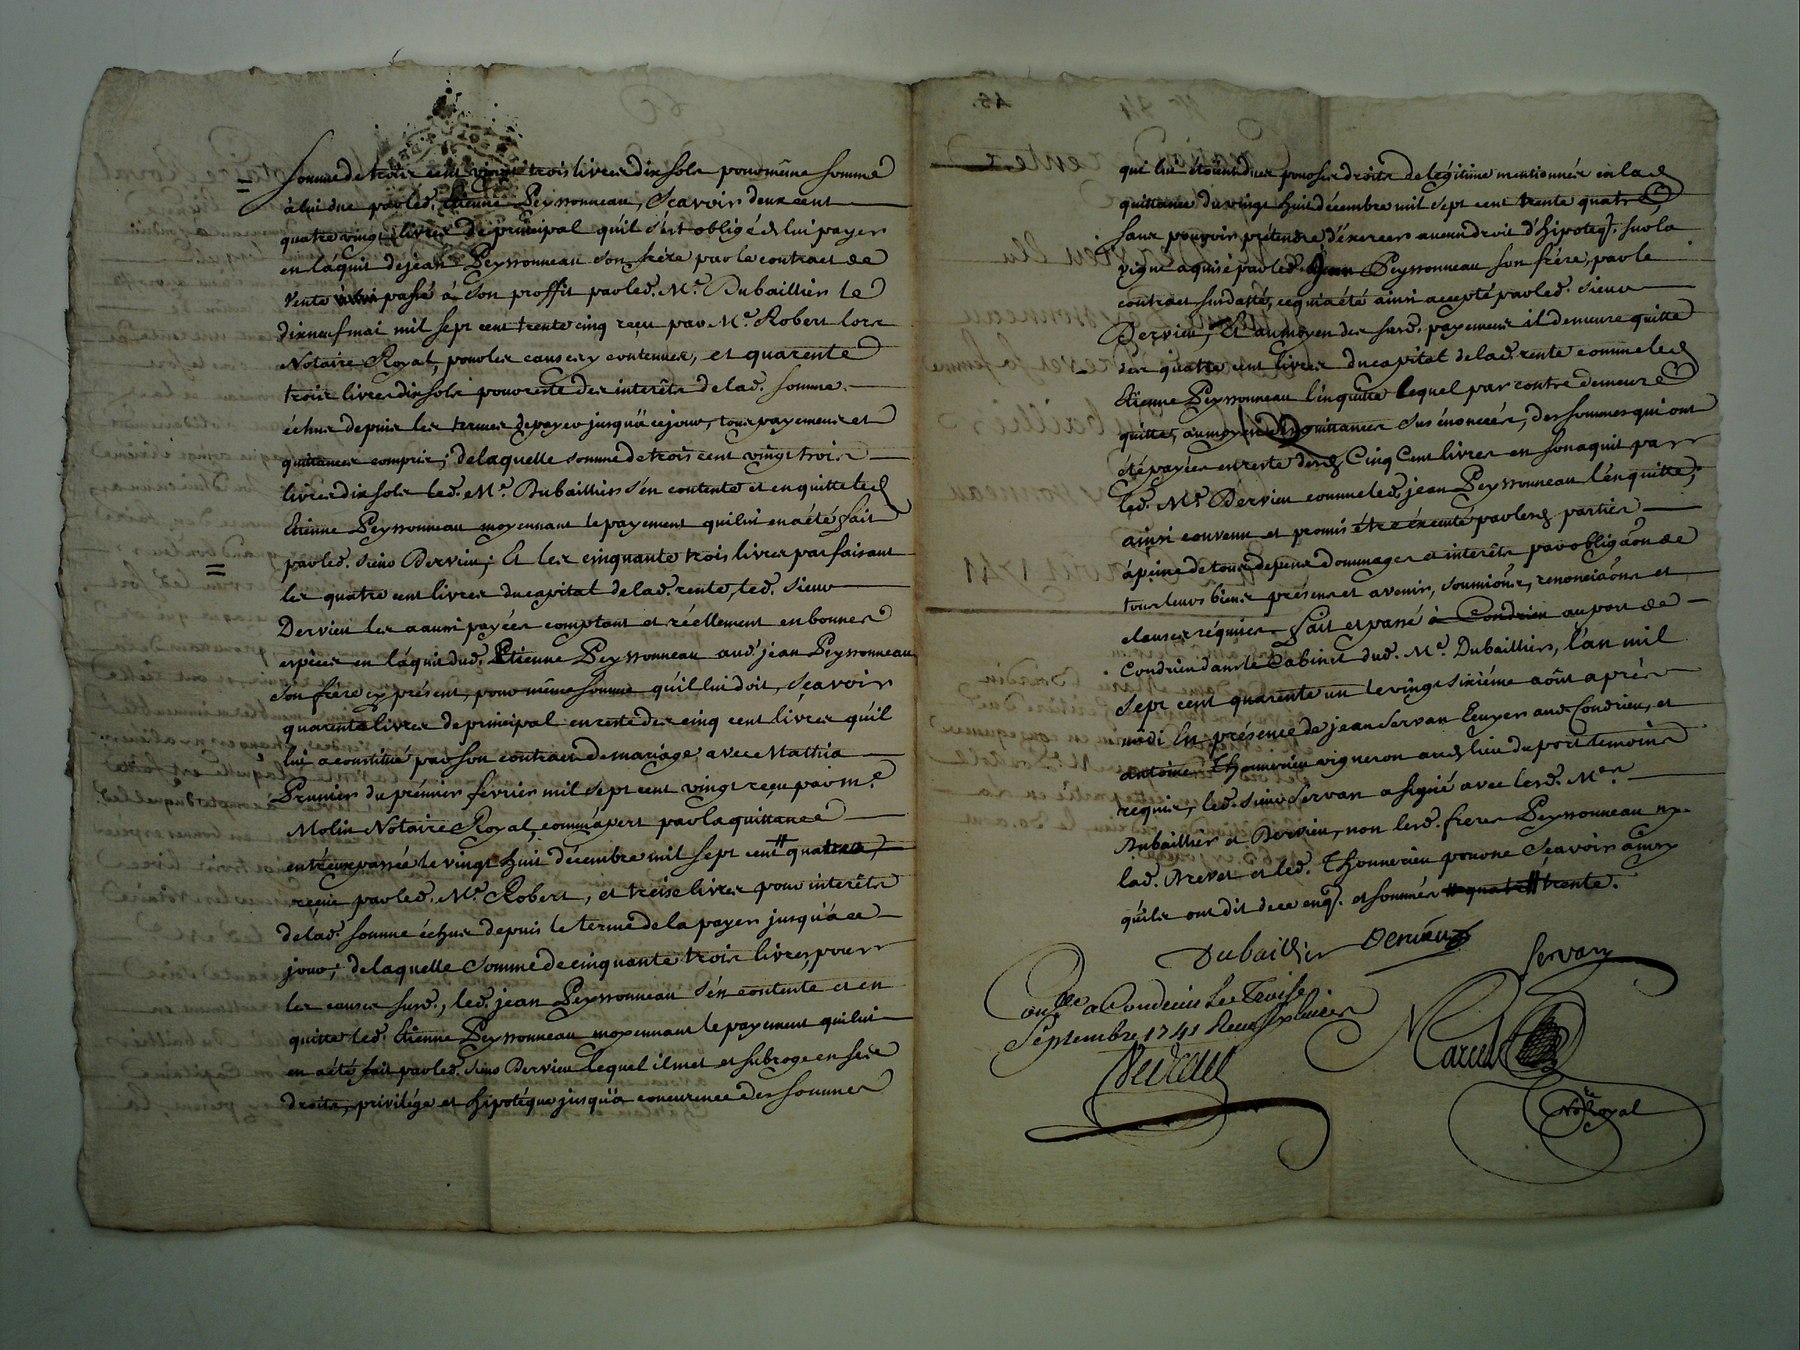 somme de trois cent vingt trois livres dix sols pour même somme
à lui due par led. Etienne Peyssonneau, Scavoir deux cent
quatre vingt livres de principal qu'il s'est obligé de lui payer
en l'aquit de jean Peyssonneau son frère par le contract de
vente passé à son proffit par led. Me. Dubaillier le
dixneuf mai mil sept cent trente cinq reçu par Me. Robert lors
Notaire Royal, pour les causes y contenues, et quarente
trois livres dix sols pour reste des interêts de lad. somme
échus depuis les termes de payer jusqu'à ce jour, tous payemens et
quittances compris; de laquelle somme de trois cent vingt trois
livres dix sols led. Me. Dubaillier s'en contente et en quitte led.
Etienne Peyssonneau moyennant le payement qui lui en a été fait
par led. sieur Dervieu; Et les cinquante trois livres parfaisant
les quatre cent livres du capital de lad. rente, led. sieur
Dervieu les a aussi payées comptant et réellement en bonnes
espèces en l'aquit dud. Etienne Peyssonneau aud. jean Peyssonneau
son frère cy présent, pour même somme qu'il lui doit, Sçavoir
quarente livres de principal en reste des cinq cent livres qu'il
lui a constitué par son contract de mariage avec Mathia
Prunier du prémier février mil sept cent vingt reçu par Me.
Molin Notaire Royal, comm'apert par la quittance
entr'eux passée le vingt huit décembre mil sept cent # quatre,
reçue par led. Me. Robert, et treise livres pour interêts
de lad. somme échus depuis le terme de la payer jusqu'à ce
jour; de laquelle somme de cinquante trois livres, pour
les causes susd., led. jean Peyssonneau s'en contente et en
quitte led. Etienne Peyssonneau moyennant le payement qui lui
en a été fait par led. sieur Dervieu lequel il met et subroge en ses
droits, privilége et hipotéque jusqu'à concurrence des sommes
que lui étoient dues pour ses droits de légitime mentionnés en lad.
quittance du vingt huit décembre mil sept cent trente quatre
sans pouvoir prétendre d'éxercer aucun droit d'hipoteq. sur la
vigne aquise par led. jean Peyssonneau son frère, par le
contract susdatté, ce qui a été ainsi accepté par led. sieur
Dervieu, Et au moyen des susd. payemens il demeure quitte
des quatre cent livres du capital de lad. rente comme led.
Etienne Peyssonneau l'en quitte lequel par contre demeure
quitte, au moyen des quittances sus énoncées, des sommes qui ont
été payées en reste desd. Cinq Cent livres en son aquit par
led. Me. Dervieu comme led. jean Peyssonneau l'en quitte;
ainsi convenu et promis être éxécuté par lesd. parties
à peine de tous depens dommages et interêts par obligaõn de
tous leurs biens présens et avenir, soumions, renonciaõns et
clauses réquises. fait et passé à Condrieu au port de
Condrieu dans le Cabinet dud. Me. Dubaillier, l'an mil
sept cent quarente un le vingt sixiéme août après
midi En présence de jean Servan Ecuyer aud. Condrieu, et
antoine Thonnerieu vigneron aud. lieu du port temoins
requis, led. sieur Servan a signé avec lesd. Mes.
Dubaillier et Dervieu, non lesd. freres Peyssonneau ny
lad. Brevet et led. Thonnerieu pour ne Sçavoir ainsy
qu'ils ont dit de ce enq. et sommés # quatre # trente.
Dubaillier Dervieu Servan
Conllé a Condrieu Le Troise
Septembre 1741 Reçu
Nore Royal